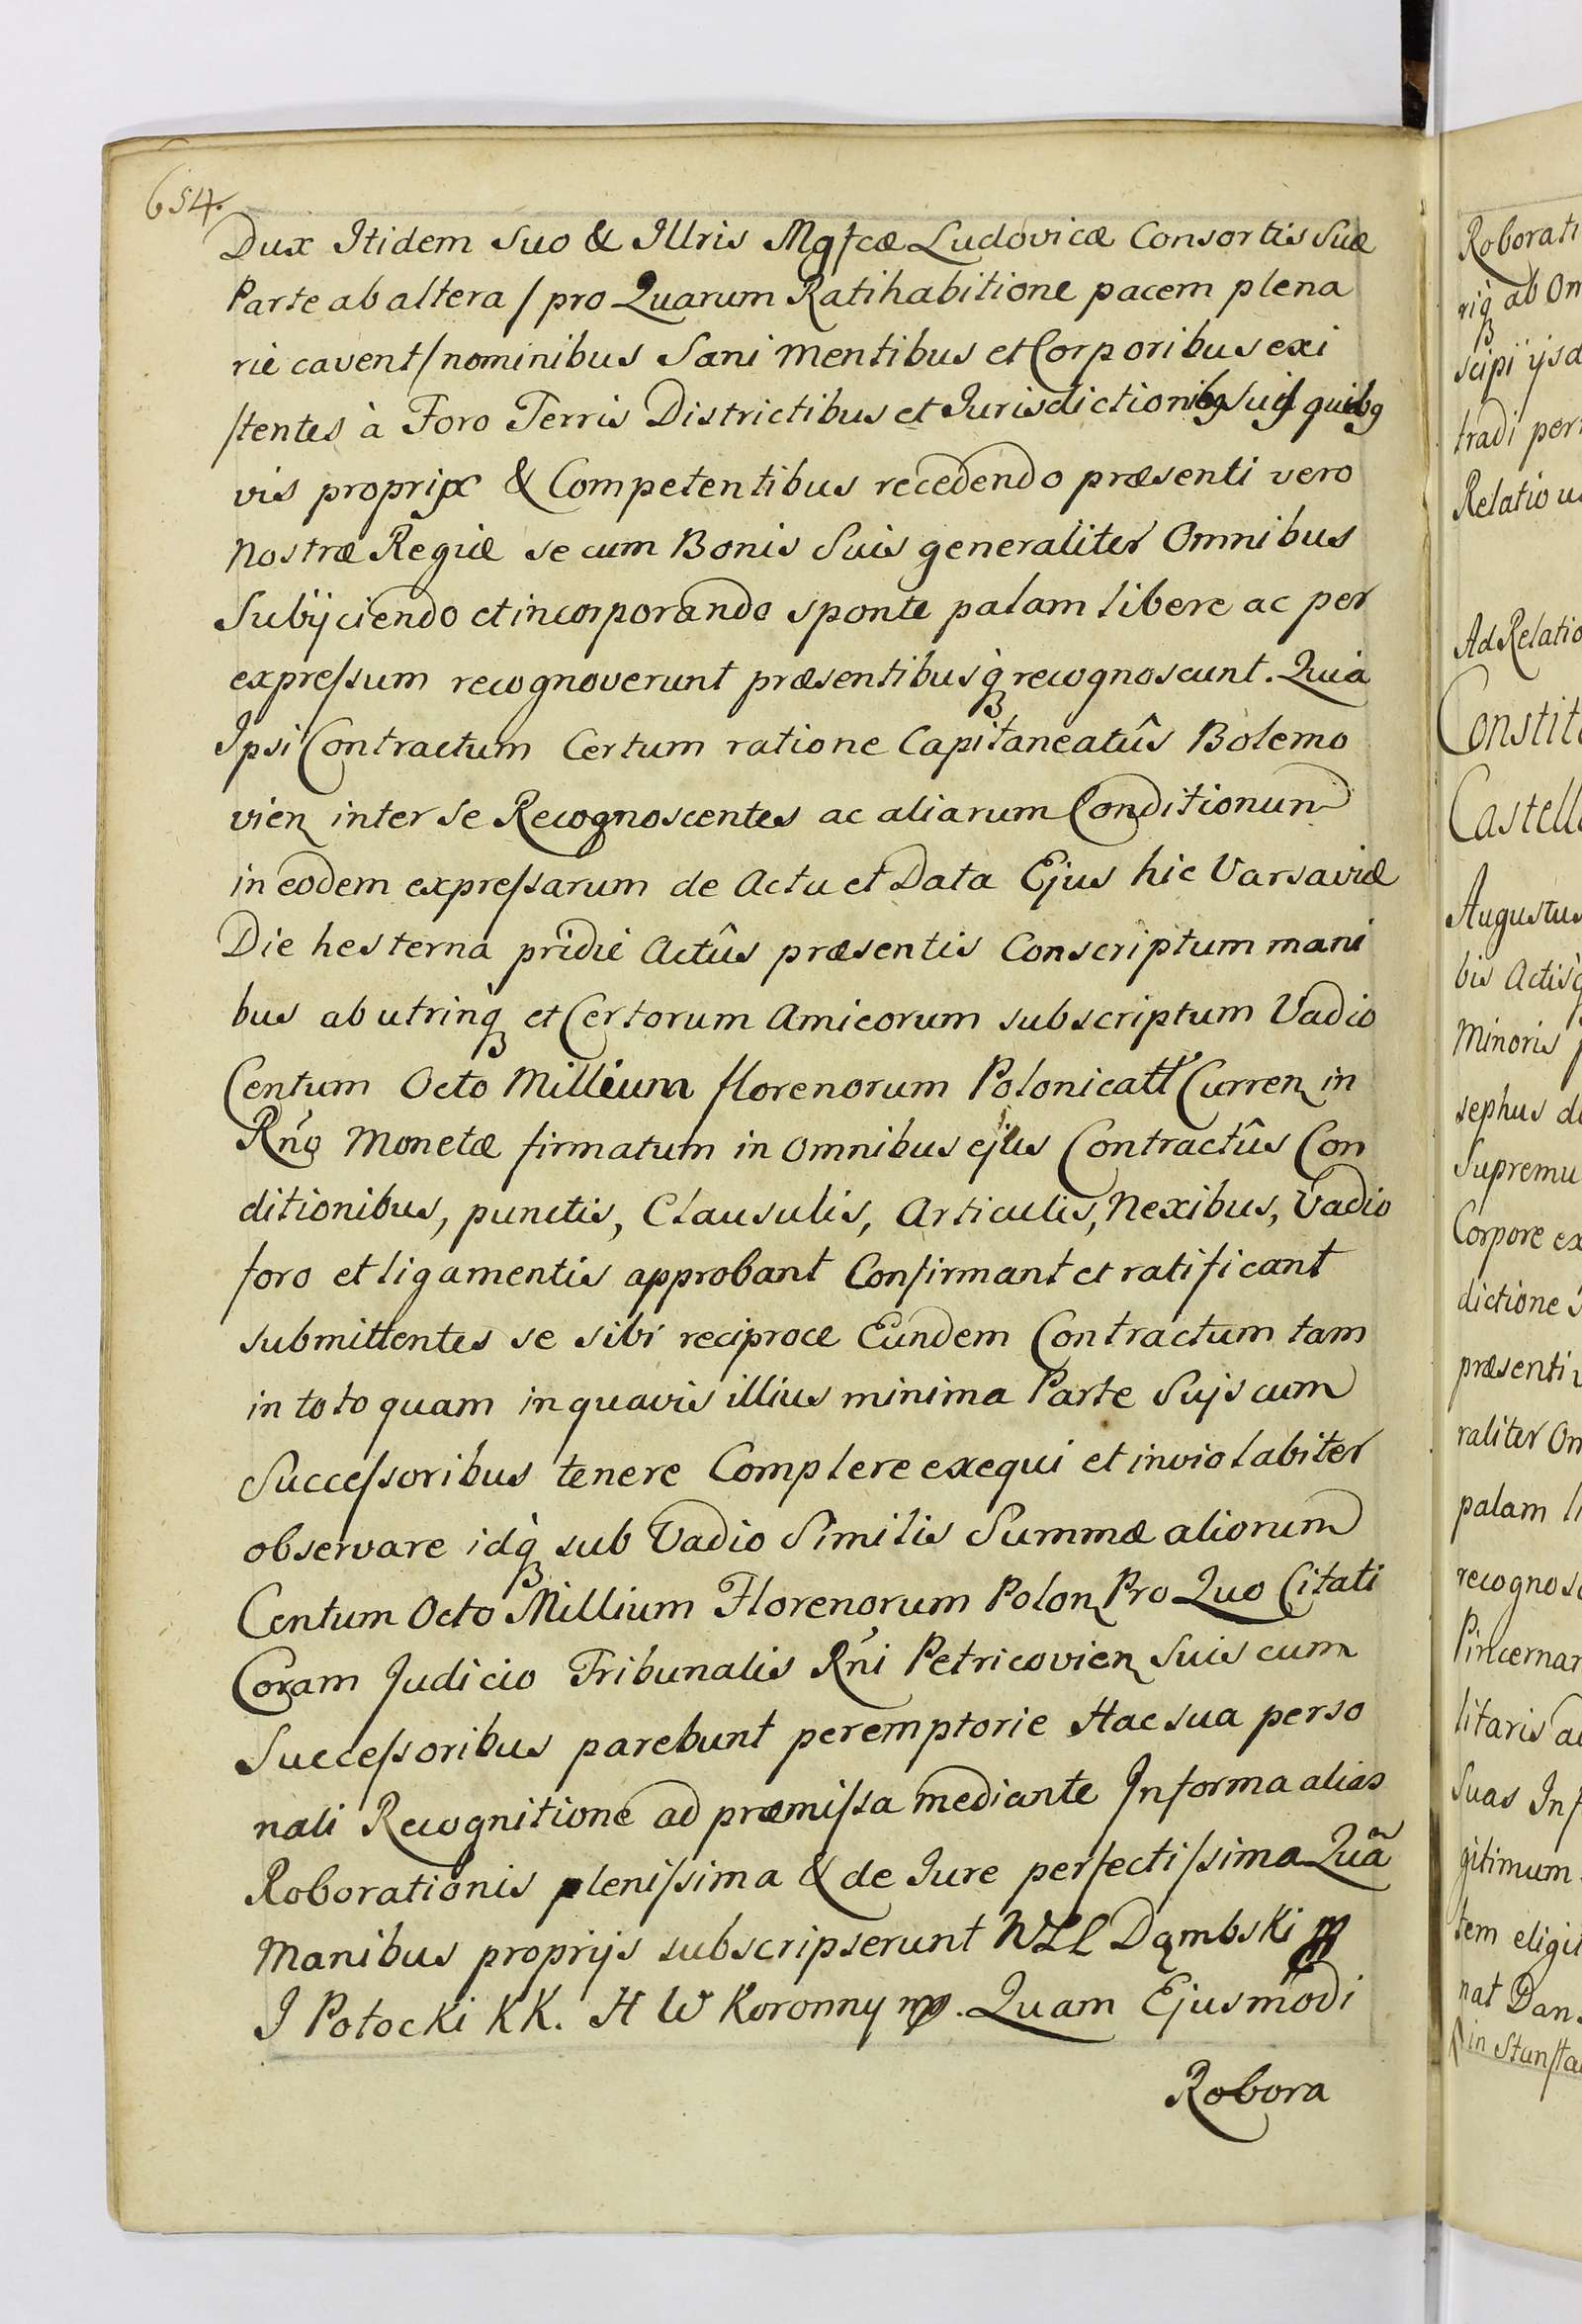 654.
Dux Itidem Suo & Illris Mgfcæ Ludovicæ Consortis Suæ
Parte ab altera / pro Quarum Ratihabitione pacem plena
rie cavent / nominibus Sani Mentibus et Corporibus exi
stentes à Foro Terris Districtibus et Jurisdictionibg Suis quibg
vis proprijs & Competentibus recedendo præsenti vero
Nostræ Regiæ se cum Bonis Suis generaliter Omnibus
Subÿciendo et incorporando sponte palam libere ac per
expressum recognoverunt præsentibusq̀ recognoscunt. Quia
Ipsi Contractum Certum ratione Capitaneatûs Bolemo
vien inter se Recognoscentes ac aliarum Conditionum
in eodem expressarum de Actu et Data Ejus hic Varsaviæ
Die hesterna pridie Actûs præsentis Conscriptum mani
bus ab utrinq̀ et Certorum Amicorum subscriptum Vadio
Centum Octo Millium florenorum Polonicall Curren in
Rńo Monetæ firmatum in omnibus ejus Contractûs Con
ditionibus, punctis, Clausulis, Articulis, Nexibus, Vadio
foro et ligamentis approbant Confirmant et ratificant
submittentes se sibi reciproce Eundem Contractum tam
in toto quam in quavis illius minima Parte Suis cum
Successoribus tenere Complere exequi et inviolabiter
observare idq̀ sub Vadio Similis Summæ aliorum
Centum Octo Millium Florenorum Polon Pro Quo Citati
Coram Judicio Tribunalis Rńi Petricovien Suis cum
Successoribus parebunt peremptorie Hac sua perso
nali Recognitione ad præmissa mediante In forma alias
Roborationis plenissima & de Jure perfectissima Quã
Manibus proprijs subscripserunt WLL Dąmbski mp
J Potocki KK. H W Koronny mp. Quam Ejusmodi
Robora
Roborati
riq̀ ab Om
scipi ijsd
tradi per
Relatio
Ad Relatio
Constit
Castell
Augustus
bis Actisq
Minoris
sephus d
Supremu
Corpore ex
dictione
præsenti
raliter Om
palam li
recognosc
Pincernar
litaris a
Suas Inf
gitimum
tem eligit
nat Dan
in Stansta